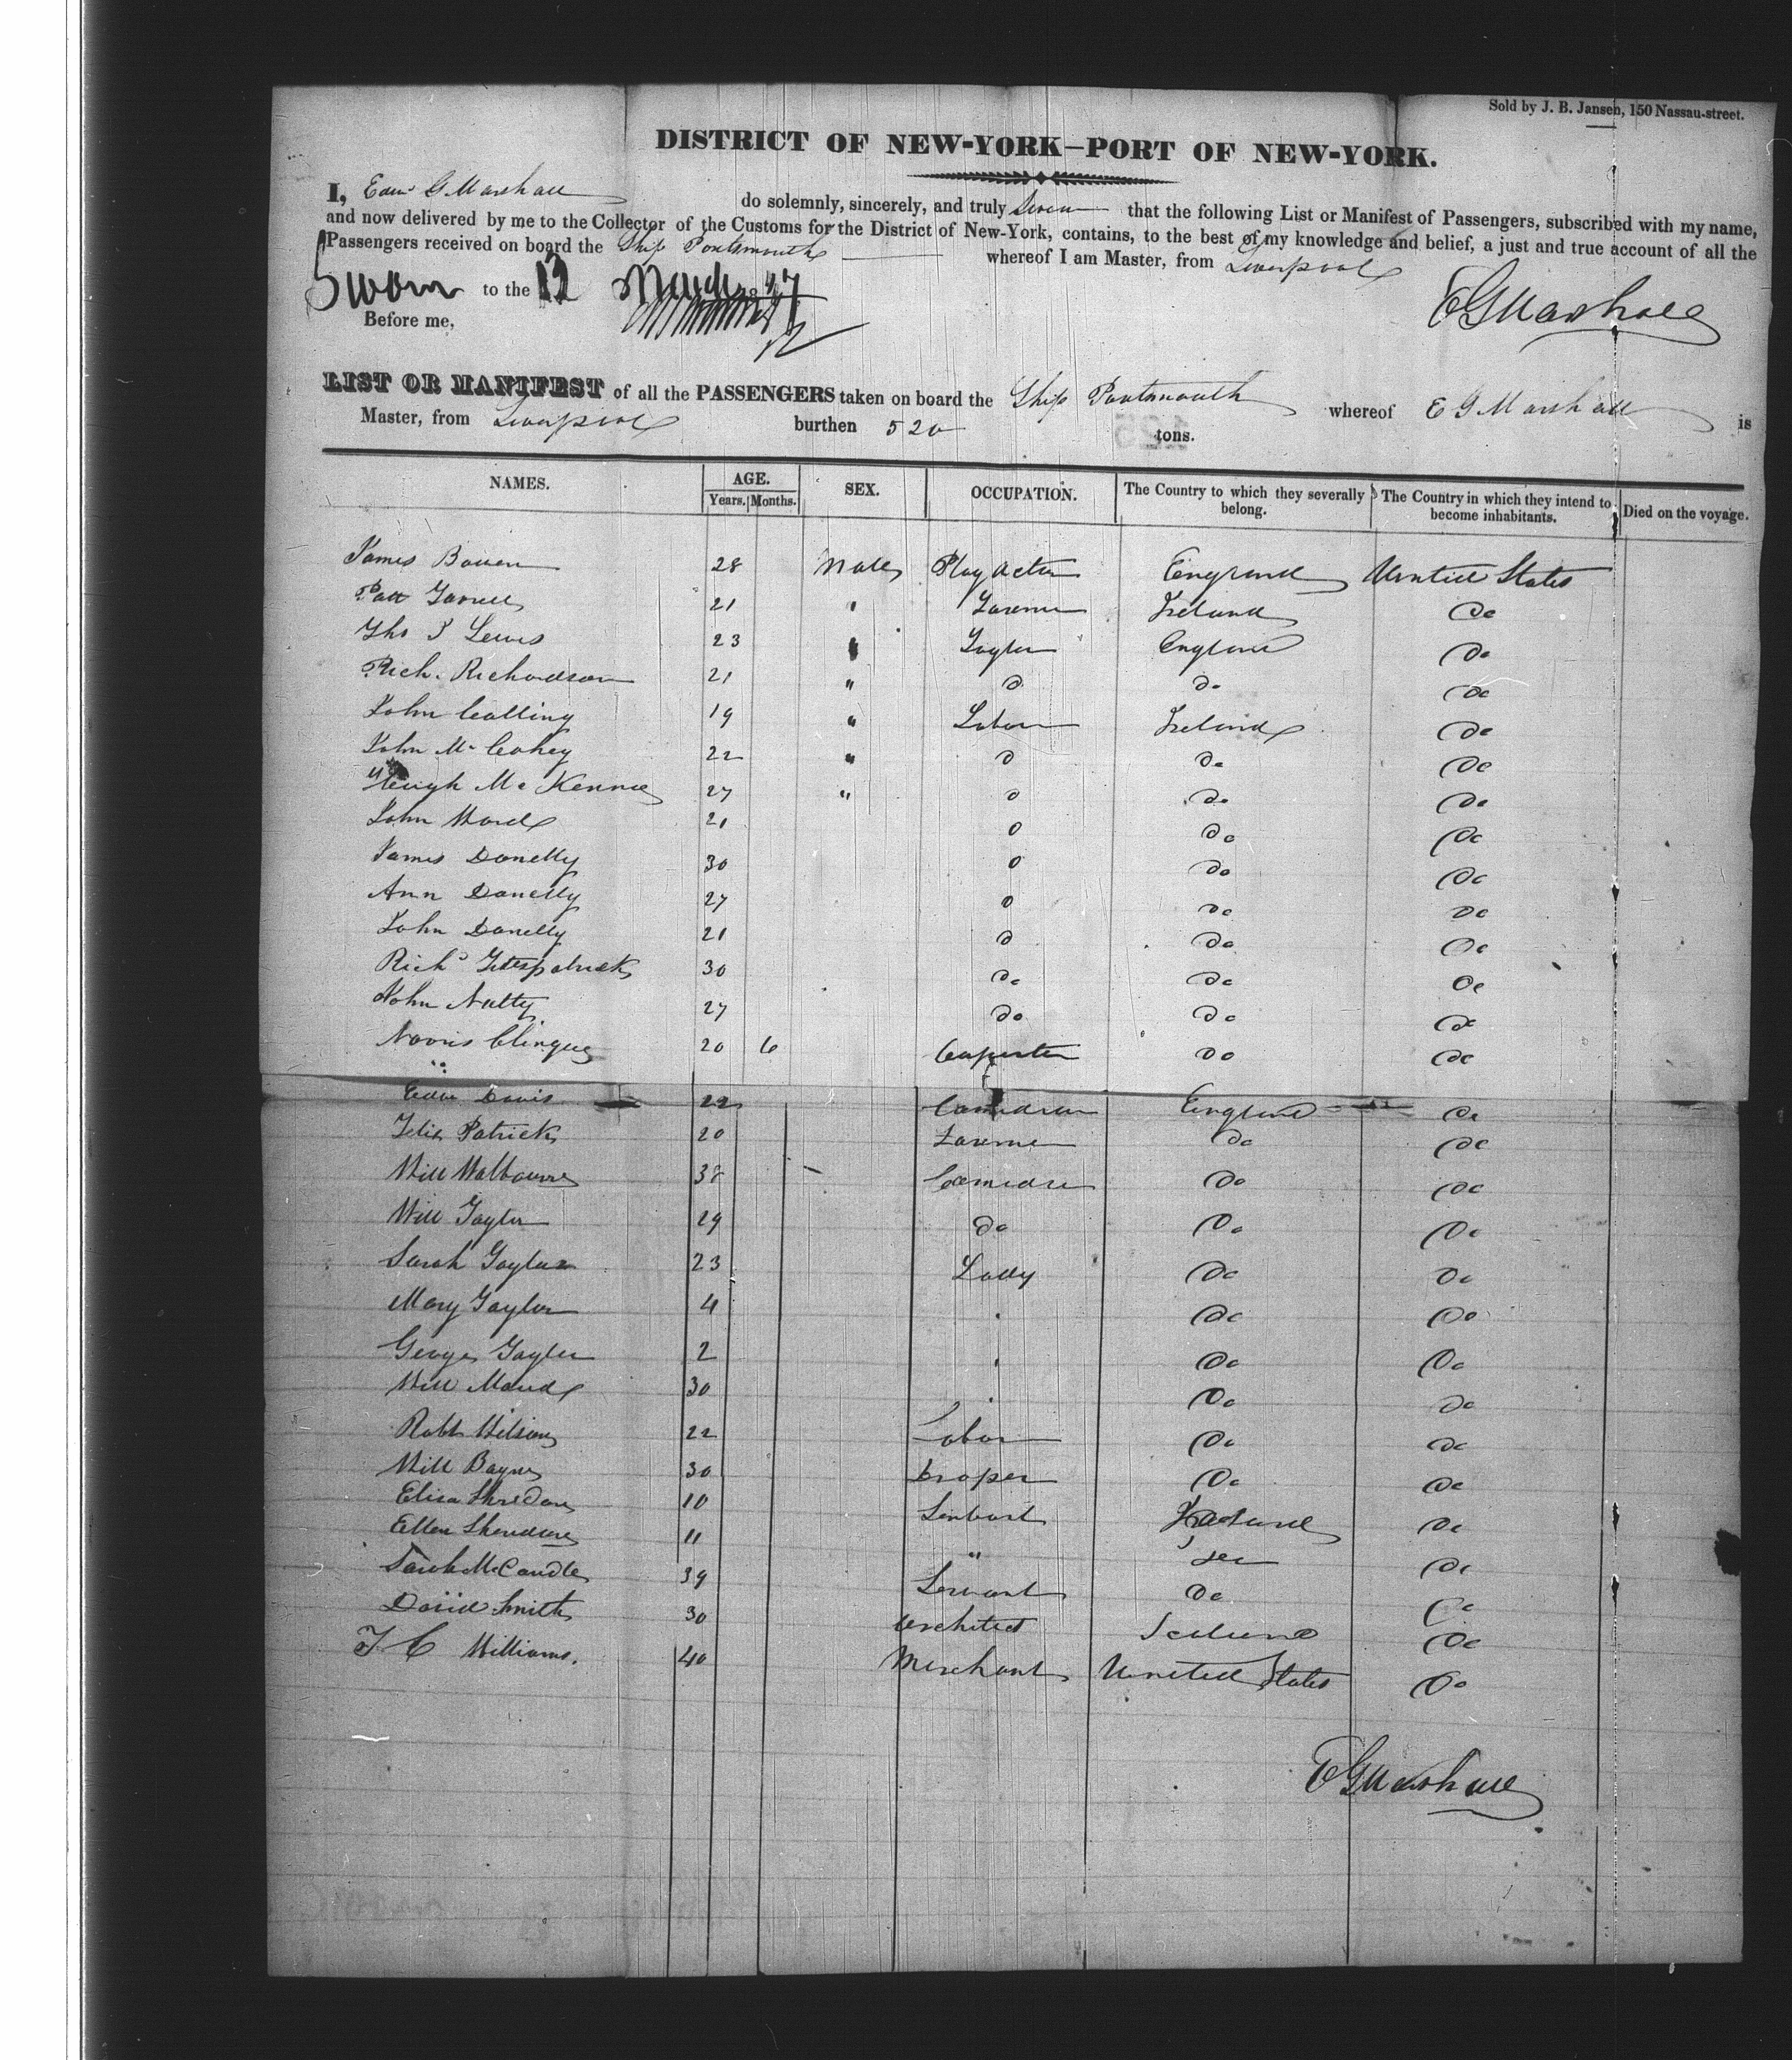 Sold by J. B. Jansen, 150 Nassau-street.
DISTRICT OF NEW-YORK—PORT OF NEW-YORK.
I, Edwd G Marshall do solemnly, sincerely, and truly Swear that the following List or Manifest of Passengers, subscribed with my name,
and now delivered by me to the Collector of the Customs for the District of New-York, contains, to the best of my knowledge and belief, a just and true account of all the
Passengers received on board the Ship Portsmouth whereof I am Master, from Liverpool
Sworn to the 12 March
Before me,
E G Marshall
LIST OR MANIFEST of all the PASSENGERS taken on board the Ship Portsmouth whereof E G Marshall is
Master, from Liverpool burthen 520 tons.
NAMES. AGE. Years. Months. SEX. OCCUPATION. The Country to which they severally belong. The Country in which they intend to become inhabitants. Died on the voyage.
James Bowen 28 Male Play Actor England United States
Patt Farrell 21 " Farmer Ireland Do
Tho J Lewis 23 " Taylor England Do
Rich. Richardson 21 " D Do Do
John Colling 19 " Labour Ireland Do
John Mc Cohey 22 " D Do Do
Heugh Mc Kenna 27 " D Do Do
John Ward 21 D Do Do
James Donelly 30 D Do Do
Ann Donelly 27 D Do Do
John Donelly 21 D Do Do
Richd Fitespatrick 30 Do Do Do
John Nulty 27 Do Do Do
20 6 Carpenter Do Do
Edw Davis 22 Comedian England Do
Felix Patrick 20 Farmer Do Do
Will Walbourne 38 Comedian Do Do
Will Taylor 29 Do Do Do
Sarah Taylor 23 Lady Do Do
Mary Taylor 4 Do Do
George Taylor 2 Do Do
Will Maud 30 Do Do
Robt Wilson 22 Labour Do Do
Will Bayne 30 Draper Do Do
Eliza Sheridan 10 Ireland Do
Ellen Sheridan 11 " Do
Sarah McCandle 39 Servant Do Do
David Smith 30 Architect Scotland Do
J C Williams. 40 Merchant United States Do
E G Marshall